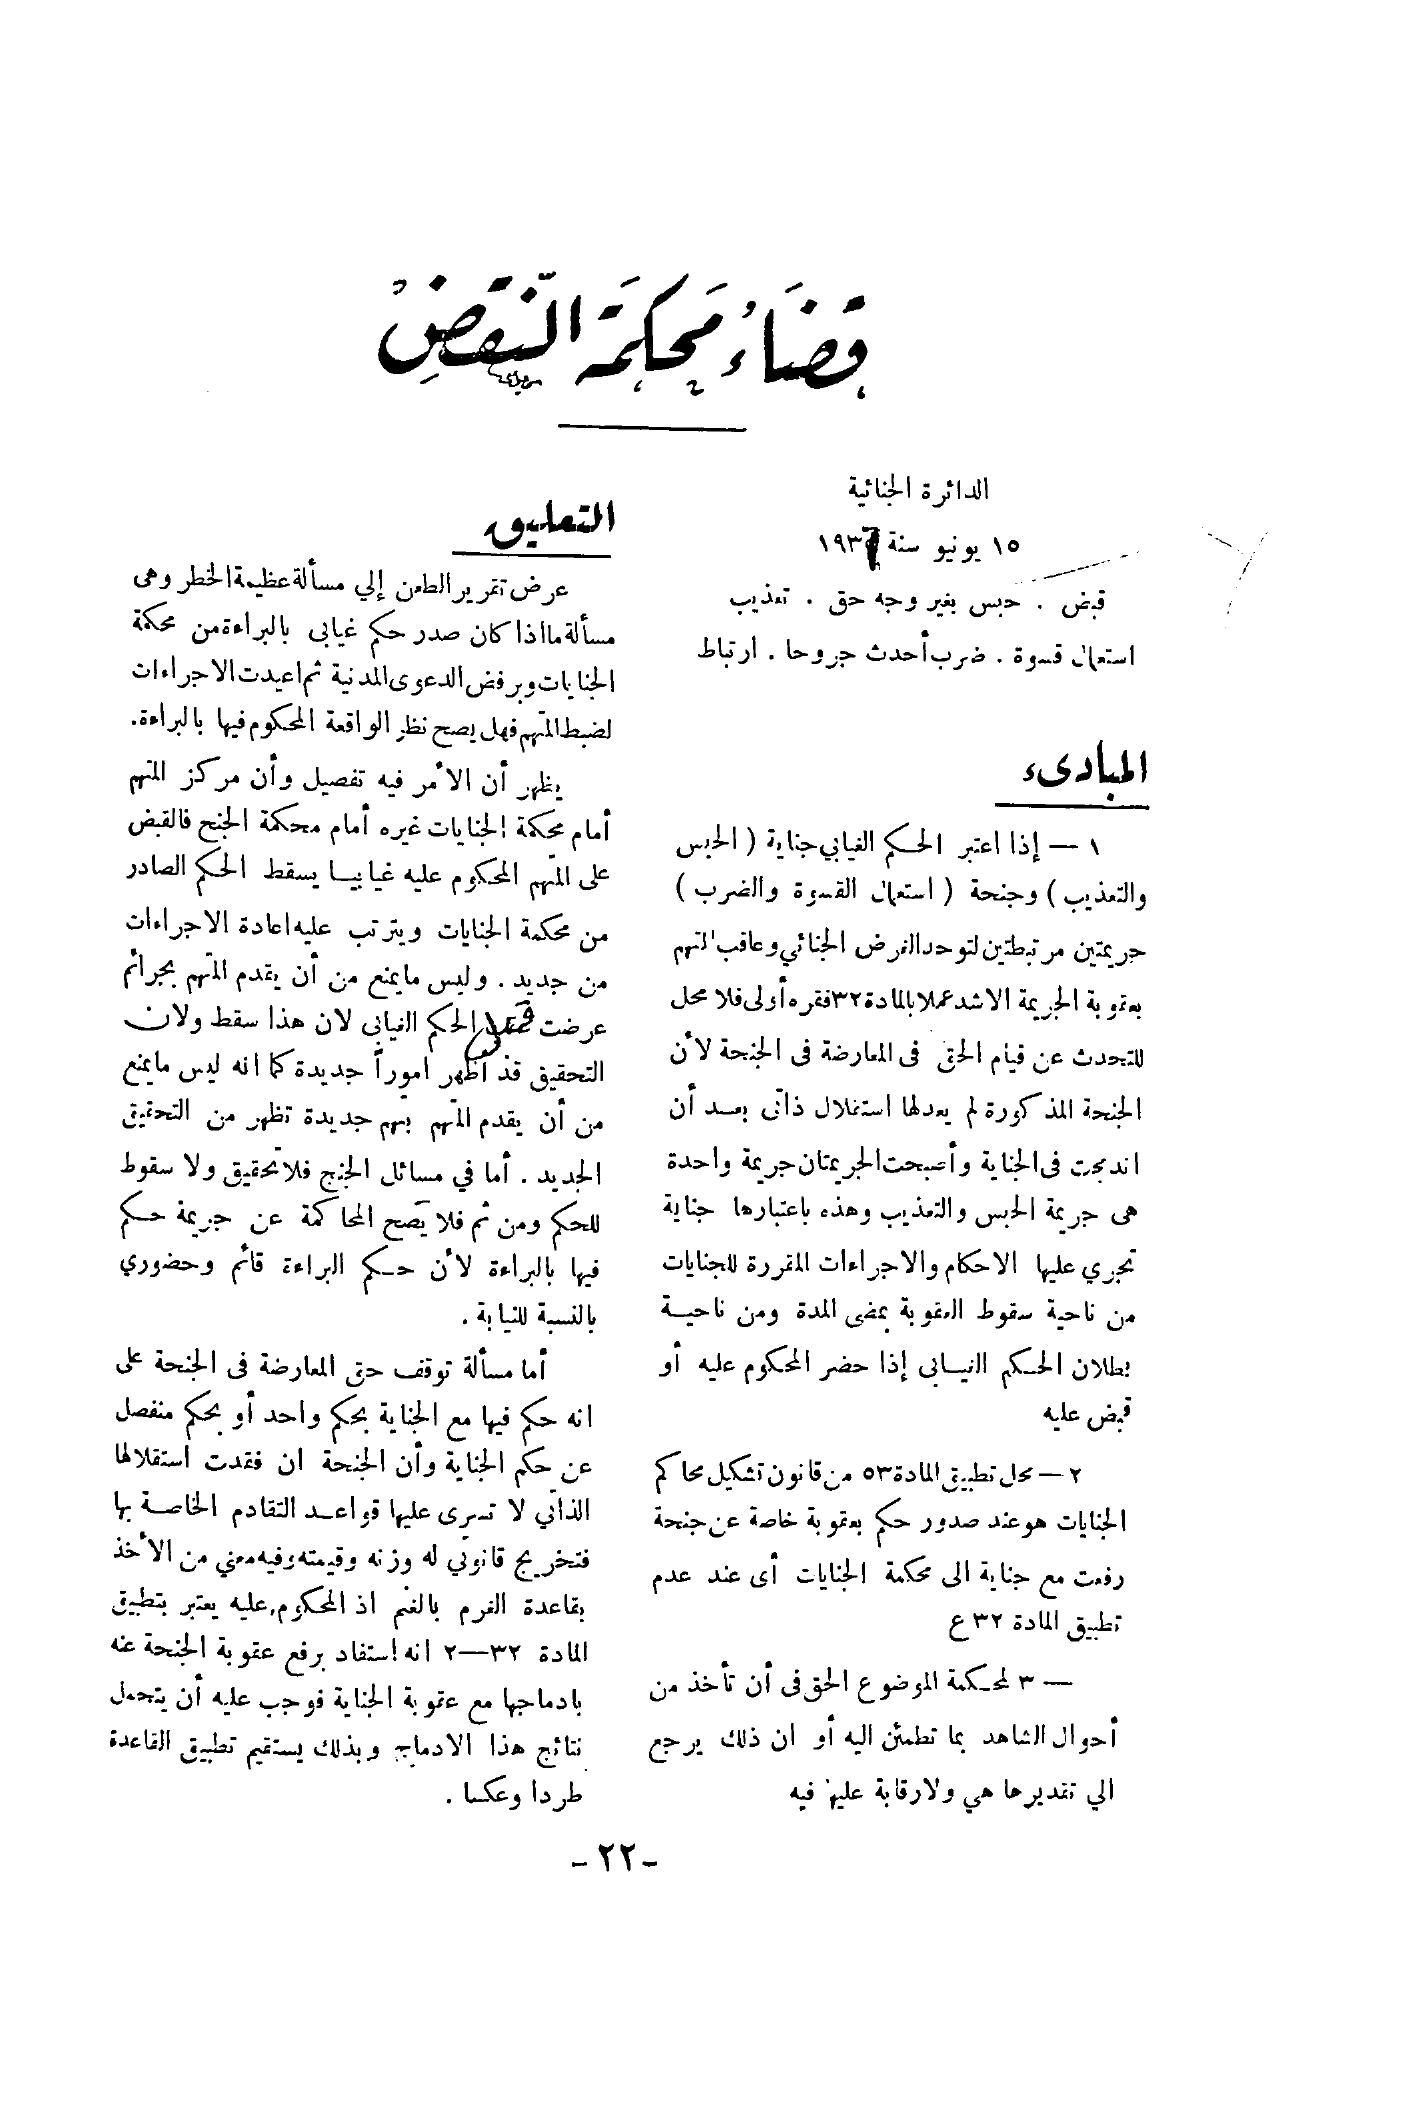 قضاء محكمة النقض
الدائرة الجنائية
١٥ يونيو سنة
قبض . حبس بغير وجه حق . تعذيب
استعمال قسوة . ضرب أحدث جروحا . ارتباط
المبادىء
١ — إذا اعتبر الحكم الغيابي جناية ( الحبس
والتعذيب ) وجنحة ( استعمال القسوة والضرب )
جريمتين مرتبطتين لتوحد الغرض الجنائي وعاقب المتهم
بعقوبة الجريمة الاشد عملا بالمادة ٣٢ فقره أولى فلا محل
للتحدث عن قيام الحق فى المعارضة فى الجنحة لأن
الجنحة المذكورة لم يعد لها استقلال ذاتى بعد أن
اندمجت فى الجناية وأصبحت الجريمتان جريمة واحدة
هى جريمة الحبس والتعذيب وهذه باعتبارها جناية
تجري عليها الاحكام والاجراءات المقررة للجنايات
من ناحية سقوط العقوبة بمضى المدة ومن ناحية
بطلان الحكم الغيابى إذا حضر المحكوم عليه أو
قبض عليه
٢ — محل تطبيق المادة ٥٣ من قانون تشكيل محاكم
الجنايات هو عند صدور حكم بعقوبة خاصة عن جنحة
رفعت مع جناية الى محكمة الجنايات أى عند عدم
تطبيق المادة ٣٢ ع
— ٣ لمحكمة الموضوع الحق فى أن تأخذ من
أحوال الشاهد بما تطمئن اليه أو ان ذلك يرجع
الي تقديرها هي ولا رقابة عليها فيه
التعليق
عرض تقرير الطعن إلي مسألة عظيمة الخطر وهى
مسألة ما اذا كان صدر حكم غيابى بالبراءة من محكمة
الجنايات وبرفض الدعوى المدنية ثم اعيدت الاجراءات
لضبط المتهم فهل يصح نظر الواقعة المحكوم فيها بالبراءة.
يظهر أن الأمر فيه تفصيل وأن مركز المتهم
أمام محكمة الجنايات غيره أمام محكمة الجنح فالقبض
على المتهم المحكوم عليه غيابيا يسقط الحكم الصادر
من محكمة الجنايات ويترتب عليه اعادة الاجراءات
من جديد . وليس مايمنع من أن يقدم المتهم بجرائم
عرضت الحكم الغيابى لان هذا سقط ولان
التحقيق قد أظهر اموراً جديدة كما انه ليس مايمنع
من أن يقدم المتهم بتهم جديدة تظهر من التحقيق
الجديد . أما في مسائل الجنح فلا تحقيق ولا سقوط
للحكم ومن ثم فلا يصح المحاكمة عن جريمة حكم
فيها بالبراءة لأن حكم البراءة قائم وحضوري
بالنسبة للنيابة .
أما مسألة توقف حق المعارضة فى الجنحة على
انه حكم فيها مع الجناية بحكم واحد أو بحكم منفصل
عن حكم الجناية وأن الجنحة ان فقدت استقلالها
الذاتي لا تسرى عليها قواعد التقادم الخاصة بها
فتخريج قانوني له وزنه وقيمته وفيه معني من الأخذ
بقاعدة الغرم بالغنم اذ المحكوم عليه يعتبر بتطبيق
المادة ٣٢—٢ انه استفاد برفع عقوبة الجنحة عنه
بادماجها مع عقوبة الجناية فوجب عليه أن يتحمل
نتائج هذا الادماج وبذلك يستقيم تطبيق القاعدة
طردا وعكسا .
- ٢٢ -